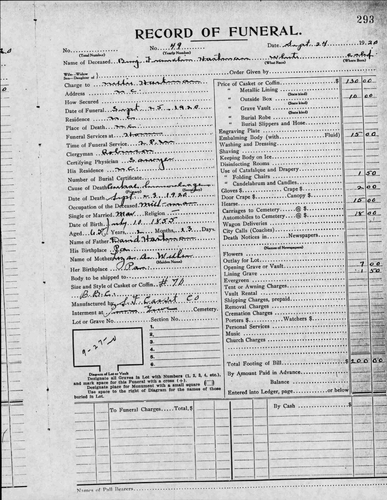 293
RECORD OF FUNERAL.
No.
(Total Number)
No. 49
(Yearly Number)
Date Sept. 24 1920
Name of Deceased Benj. Franklin Hartman White
(What Race)
(Where Born)
Charge to Hartman
Order Given by
Address N.C.
How Secured
Date of Funeral Sept. 25, 1920
Residence N.C.
Place of Death N.C.
Funeral Services at Home
Time of Funeral Service 2 P.M.
Clergyman Robinson
Certifying Physician Sawyer
His Residence N.C.
Number of Burial Certificate
Cause of Death
Date of Death Sept. 23, 1920
Occupation of the Deceased Mill-man
Single or Married Mar. Religion
Date of Birth July 11, 1855
Aged 65 Years, 2 Months 13 Days
Name of Father David Hartman
His Birthplace Pa.
Name of Mother
(Maiden Name)
Her Birthplace Pa.
Body to be shipped to
Size and Style of Casket or Coffin, # 70
Manufactured by Casket Co
Interment at Cemetery.
Lot or Grave No. Section No.
1.
2.
3.
4.
5.
Diagram of Lot or Vault
Designate all Graves in Lot with Numbers (1, 2, 3, 4, etc.), and mark space for this Funeral with a cross (+).
Designate place for Monument with a small square
Use space at right to designate names of those Buried in Lot.
Price of Casket or Coffin $ 130 00
" Metallic Lining
(State kind)
" Outside Box 10 00
(State kind)
" Grave Vault
(State kind)
" Burial Robe
" Burial Slippers and Hose
Engraving Plate
Embalming Body (with Fluid) 15 00
Washing and Dressing
Shaving
Keeping Body on Ice
Disinfecting Rooms
Use of Catafalque and Drapery
" Folding Chairs 1 50
" Candelabrum and Candles
Gloves $ 2 00
Door Crape $ Canopy $
Hearse 15 00
Carriages to Cemetery @ $
Automobiles to Cemetery @ $ 18 00
Wagon Deliveries
City Calls (Coaches)
Death Notices in Newspapers
(Names of Newspapers)
Flowers
Outlay for Lot
Opening Grave or Vault 7 00
Lining Grave 1 50
Evergreen
Tent or Awning Charges
Vault Rental
Shipping Charges, prepaid
Removal Charges
Cremation Charges
Porters $ Watchers $
Personal Services
Music
Church Charges
Total Footing of Bill $ 200 00
By Amount Paid in Advance
Balance
Entered into Ledger, page or below
To Funeral Charges Total, $
By Cash $
Names of Pall Bearers